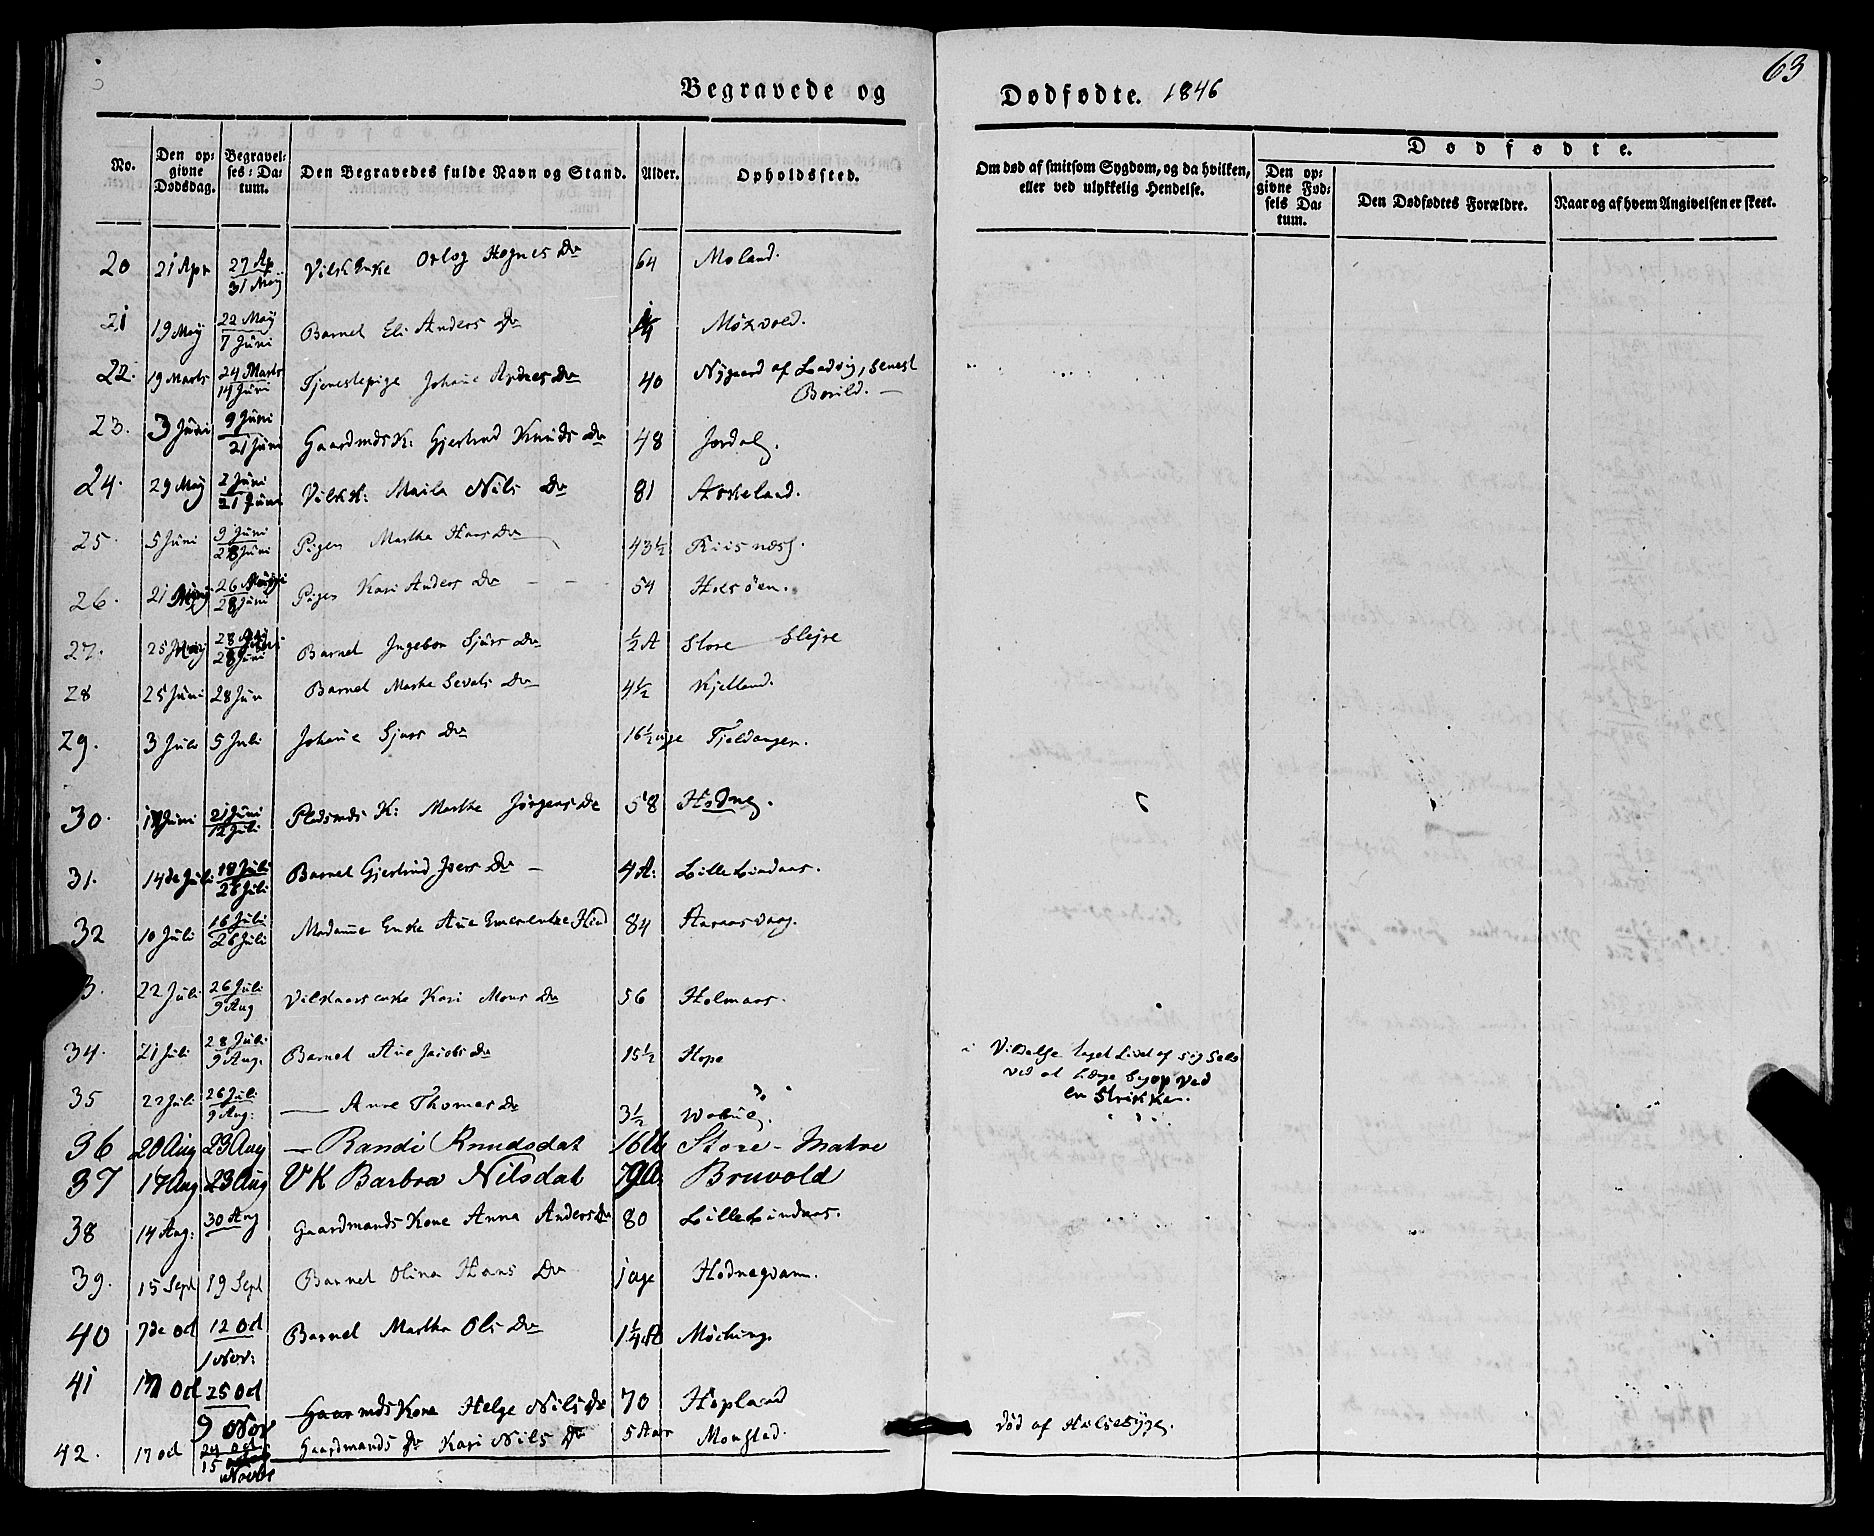 63
Begravede og Dødfødte. 1846
No.
Den opgivne Dødsdag.
Begravelses-Datum.
Den Begravedes fulde Navn og Stand.
Alder.
Opholdssted.
Om død af smitsom Sygdom, og da hvilken, eller ved ulykkelig Hendelse.
Dødfødte.
Den opgivne Fødsels Datum.
Den Dødfødtes Forældre.
Naar og af hvem Angivelsen er skeet.
20 21 Apr 27 Ap 31 May Vilk Enke Orlog Hognes Dr 64 Moland.
21 19 May 22 May 7 Juni Barnet Eli Anders Dr Moxvold.
22. 19 Marts 24 Marts 14 Juni Tjenestepige Johane Andres Dr 40 Nygaard af Ladvig, senest
23. 3 Juni 9 Juni 21 Juni Gaardmds K: Gjertrud Knuds Dr 48 Jordal.
24. 29 May 2 Juni 21 Juni Vilkk: Marita Nils Dr 81 Askeland.
25. 5 Juni 9 Juni 28 Juni Pigen Martha Hans Dr 43½ Riisnæs.
26. 21 26 28 Juni Pigen Kari Anders Dr 54 Holsöen.
27. 25 May 28 28 Juni Barnet Ingebor Sjurs Dr ½ A Store
28 25 Juni 28 Jun Barnet Marta Sevats Dr 4½ Kjelland.
29. 3 Juli 5 Juli Johane Sjurs Dr 16½ uge Fjeldanger.
30. Juni 21 Juni 12 Juli Pladsmds K: Martha Jörgens Dr 58 Hodne.
31. 14de Juli 18 Juli 26 Juli Barnet Gjertrud Ivers Dr 4 A: Lille Lindaas.
32 10 Juli 16 Juli 26 Juli Madame Enke Ane Emerentze Hind 84
3. 22 Juli 26 Juli 9 Aug Vilkaarsenke Kari Mons Dr 56 Holmaas.
34. 21 Juli 28 Juli 9 Aug. Barnet Ane Jacobs Dr 15½ Hope i Vildelse taget Livet af sig Selv
ved at hænge seg op ved
en Strikke.
35 22 Juli 26 Juli 9 Aug: — Anne Thomas Dr 3½
36 20 Aug 23 Aug — Randi Knudsdat 16 Store-Matre
37 17 Aug 23 Aug VK Barbra Nilsdat 79 Bruvold
38 14 Aug: 30 Aug Gaardmands Kone Anna Anders Dr 80 Lille Lindaas.
39. 15 Sept 19 Sept Barnet Olina Hans Dr 1 age Hodnegvam.
40 7de Oct 12 Oct 1 Nov: Barnet Martha Ols Dr 1¼ A
41 Oct 25 Oct 9 Nov Gaardmds Kone Helge Nils Dr 70 Hopland
42. 17 Oct 24 Oct 15 Novbr Gaardmands Dr Kari Nils Dr 5 Aar Mongstad. död af Halsesyge.